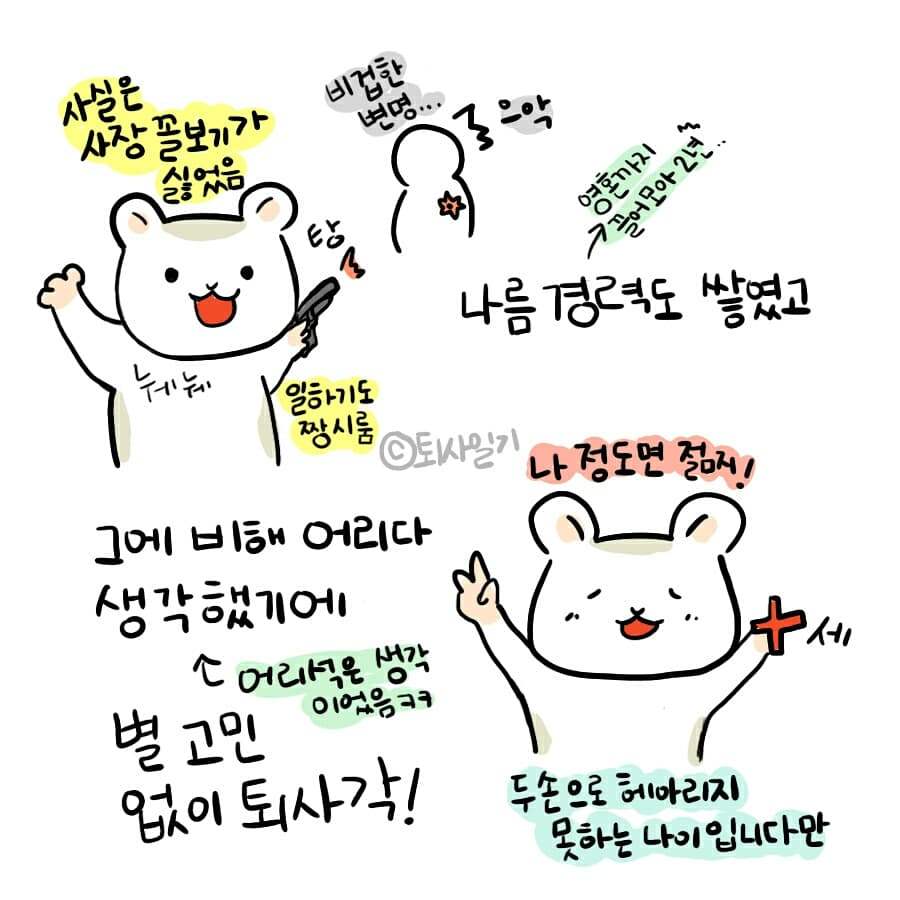 사실은
사장 꼴보기가
싫었음
비겁한
변명...
으악
탕
눼눼
일하기도
짱시룸
영혼까지
끌어모아 2년..
나름 경력도 쌓였고
©퇴사일기
나 정도면 젊지!
세
두손으로 헤아리지
못하는 나이입니다만
그에 비해 어리다
생각했기에
어리석은 생각
이었음ㅋㅋ
별 고민
없이 퇴사각!